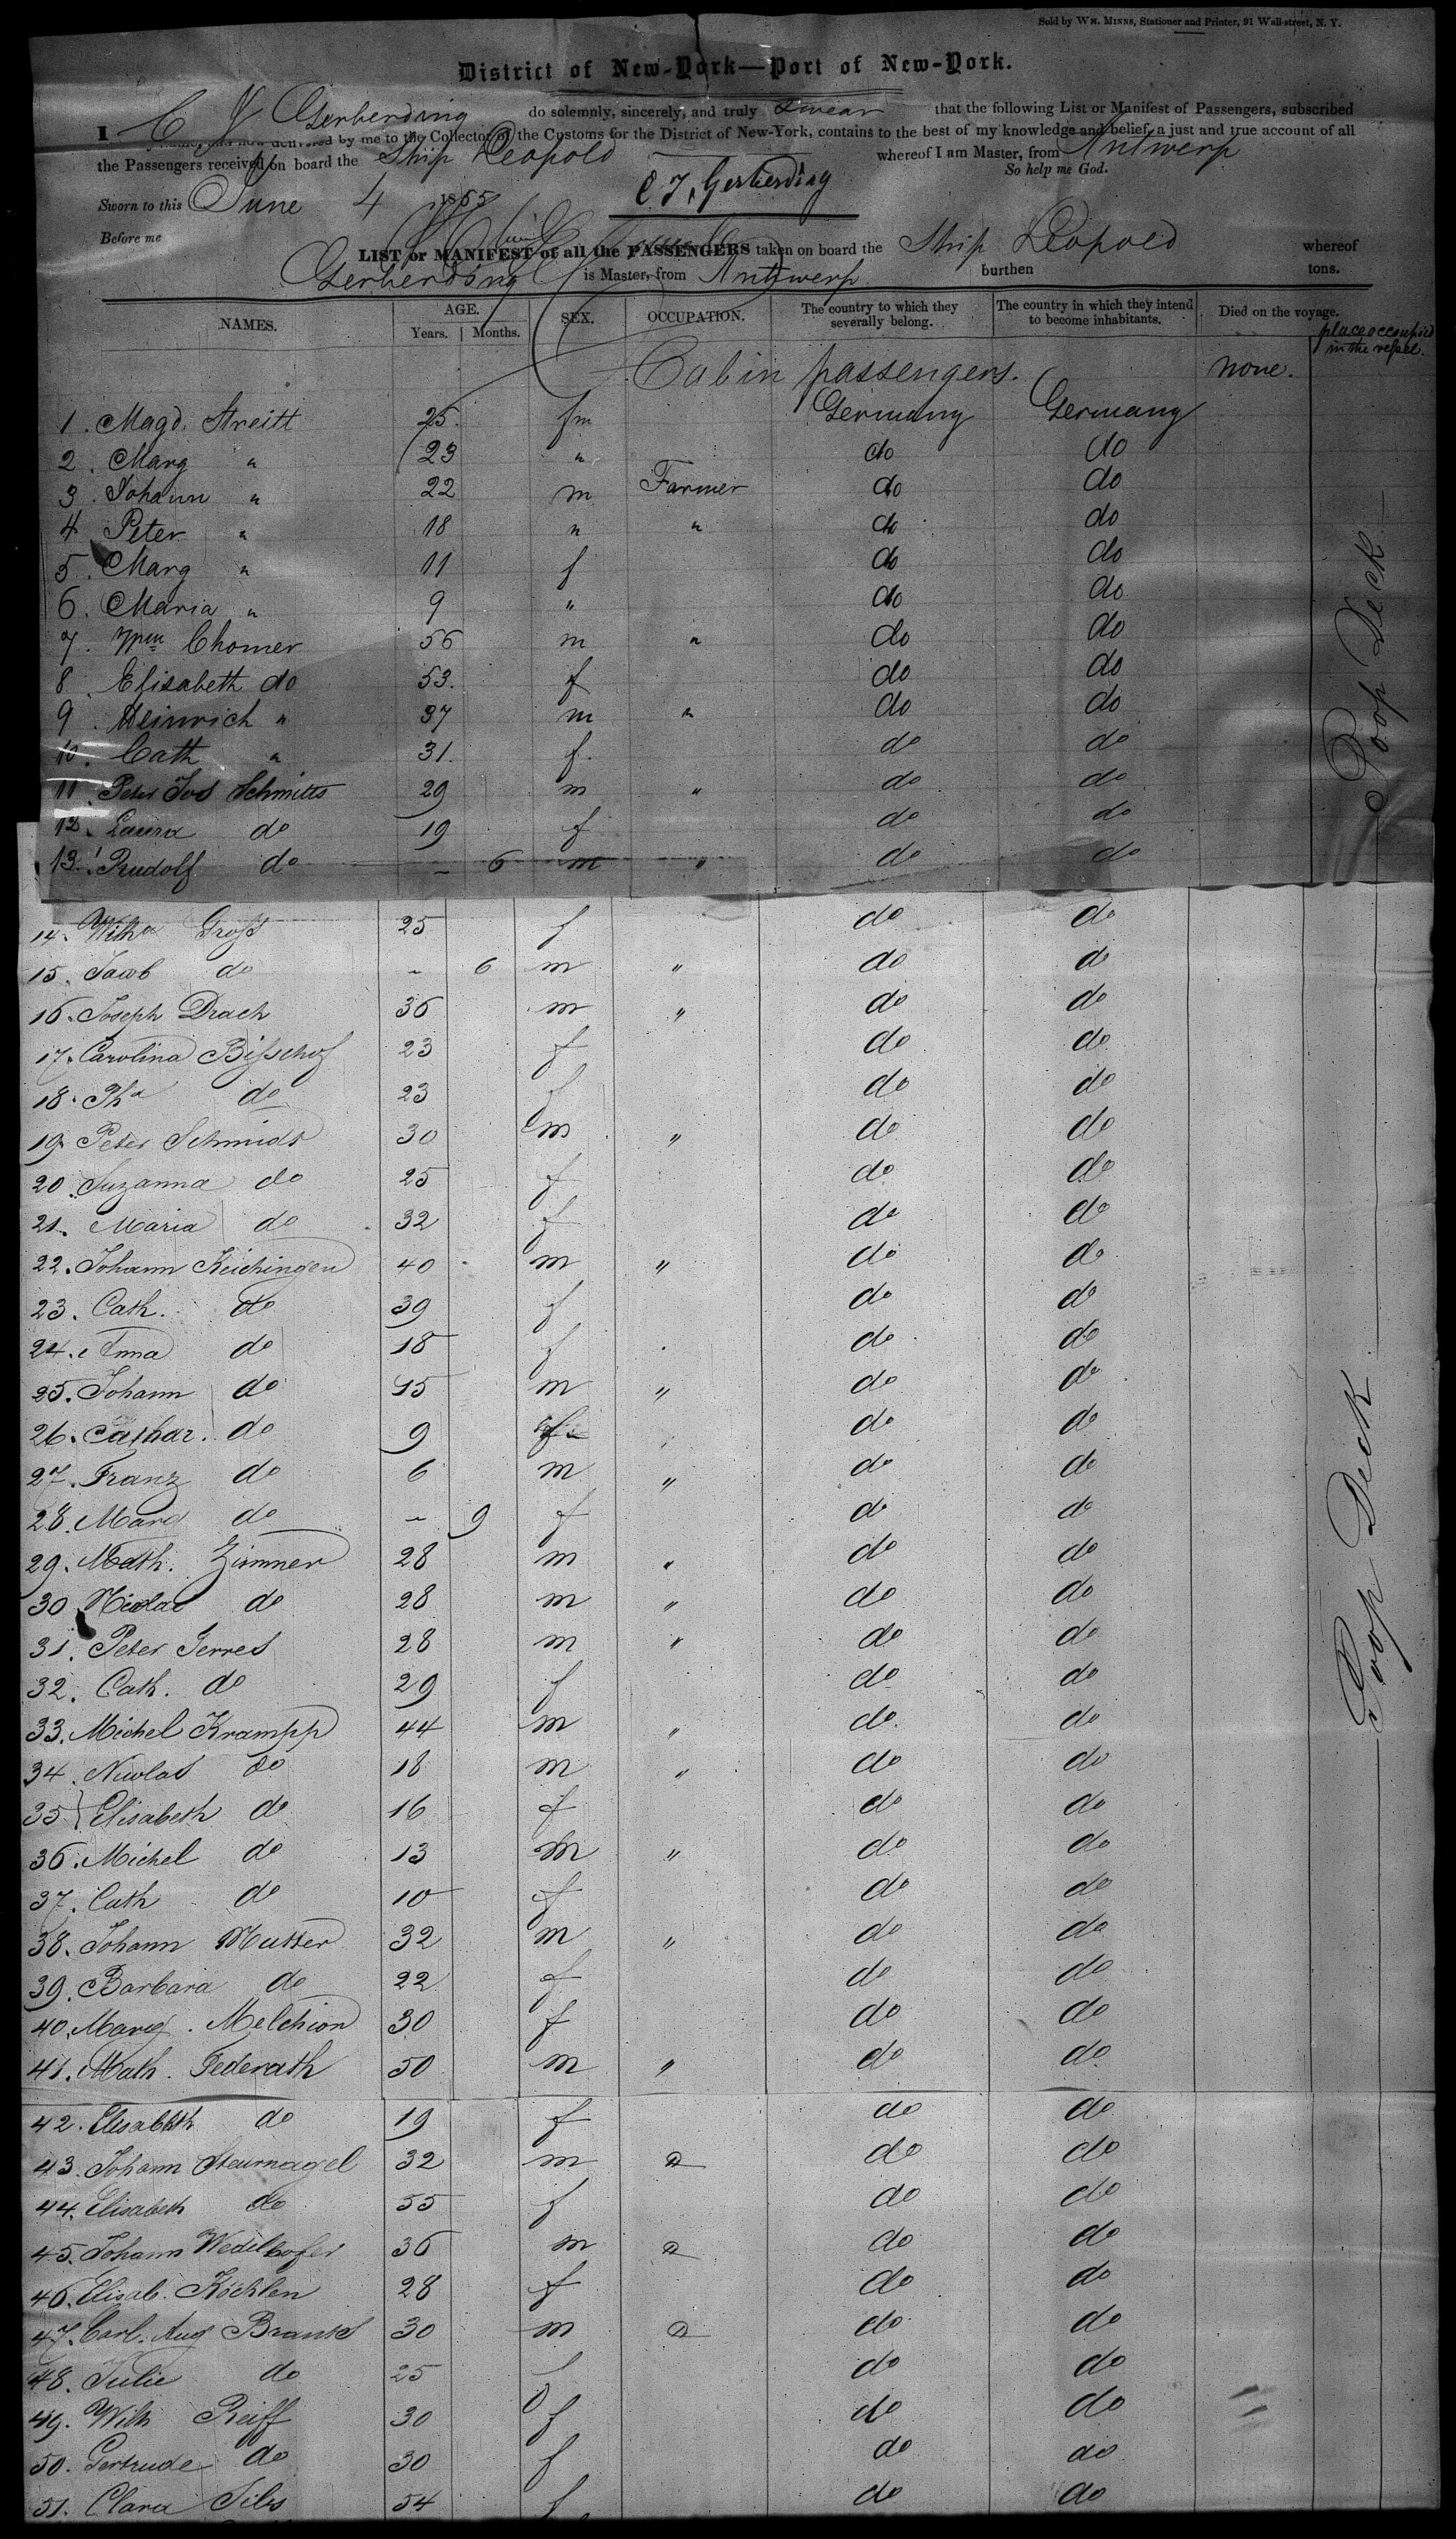 Sold by WM. MINNS, Stationer and Printer, 91 Wall-street, N. Y.
District of New-York—Port of New-York.
I C F Gerberding do solemnly, sincerely, and truly swear that the following List or Manifest of Passengers, subscribed
now delivered by me to the Collector of the Customs for the District of New-York, contains to the best of my knowledge and belief, a just and true account of all
the Passengers received on board the Ship Leopold whereof I am Master, from Antwerp
So help me God.
Sworn to this June 4 1865 C F, Gerberding
Before me
LIST or MANIFEST of all the PASSENGERS taken on board the Ship Leopold whereof
Gerberding is Master, from Antwerp burthen tons.
NAMES. AGE. Years. Months. SEX. OCCUPATION. The country to which they severally belong. The country in which they intend to become inhabitants. Died on the voyage. place occupied in the vessel.
Cabin passengers. none.
1. Magd. Streitt 25. fm Germany Germany
2. Marg " 23 " do do
3. Johann " 22 m Farmer do do
4 Peter " 18 " " do do
5. Marg " 11 f do do
6. Maria " 9 " do do
7. Wm Chomer 56 m " do do
8. Elisabeth do 53. f do do
9. Heinrich " 37 m " do do
10. Cath " 31. f. do do
11 Peter Jos Schmitts 29 m " do do
12. Laura do 19 f do do
13. Rudolf do - 6 m " do do
Poop Deck
14. Wilha Gross 25 f do do
15. Jacob do - 6 m " do do
16. Joseph Drach 36 m " do do
17. Carolina Bisschof 23 f do do
18. Pha do 23 f do do
19. Peter Schmidt 30 m " do do
20. Suzanna do 25 f do do
21. Maria do 32 f do do
22. Johann Keichingen 40 m " do do
23. Cath. do 39 f do do
24. Anna do 18 f do do
25. Johann do 15 m " do do
26. Cathar. do 9 f do do
27. Franz do 6 m " do do
28. Marg do - 9 f do do
29. Math. Zimmer 28 m " do do
30 Nicolas do 28 m " do do
31. Peter Jerres 28 m " do do
32. Cath. do 29 f do do
33. Michel Krampp 44 m " do do
34. Nicolas do 18 m " do do
35 Elisabeth do 16 f do do
36. Michel do 13 m " do do
37. Cath do 10 f do do
38. Johann Mutter 32 m " do do
39. Barbara do 22 f do do
40. Marg. Melchion 30 f do do
41. Math. Federath 50 m " do do
Poop Deck
42. Elisabeth do 19 f do do
43. Johann Steurnagel 32 m do do
44. Elisabeth do 55 f do do
45. Johann Wedelhofer 36 m do do
46. Elisab. Köchlen 28 f do do
47. Carl. Aug Brants 30 m do do
48. Julie do 25 f do do
49. Wilh Reiff 30 f do do
50. Gertrude do 30 f do do
51. Clara Siles 54 f do do